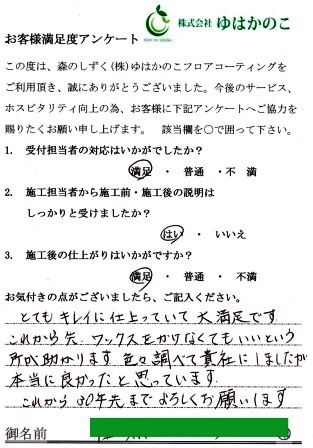 株式会社 ゆはかのこ
お客様満足度アンケート
この度は、森のしずく(株)ゆはかのこフロアコーティングを
ご利用頂き、誠にありがとうございました。今後のサービス、
ホスピタリティ向上の為、お客様に下記アンケートへご協力を
賜りたくお願い申し上げます。 該当欄を○で囲って下さい。
1. 受付担当者の対応はいかがでしたか?
満足 ・ 普通 ・不 満
2. 施工担当者から施工前・施工後の説明は
しっかりと受けましたか?
はい ・ いいえ
3. 施工後の仕上がりはいかがですか?
満足 ・ 普通 ・ 不満
お気付きの点がございましたら、ご記入ください。
とてもキレイに仕上っていて 大満足です
これから先、ワックスをかけなくてもいいという
所が助かります 色々調べて貴社にしましたが
本当に良かったと思っています。
これから30年先までよろしくお願いします
御名前